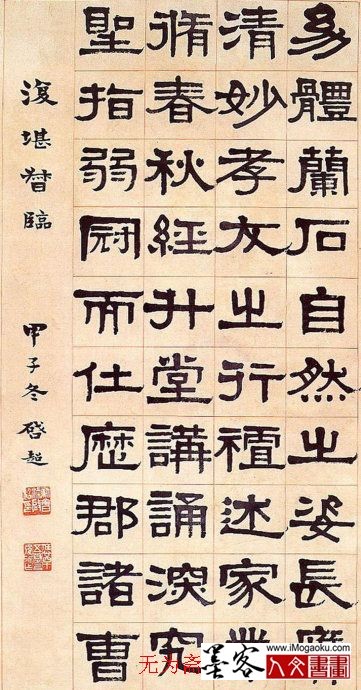 幼體蘭石自然之姿長膺
清妙孝友之行述家業
脩春秋經升堂講誦深究
聖指弱冠而仕歷郡諸曹
復堪督臨 甲子冬啓超
无为斋
墨客
www.iMogaoku.com
人文書畫